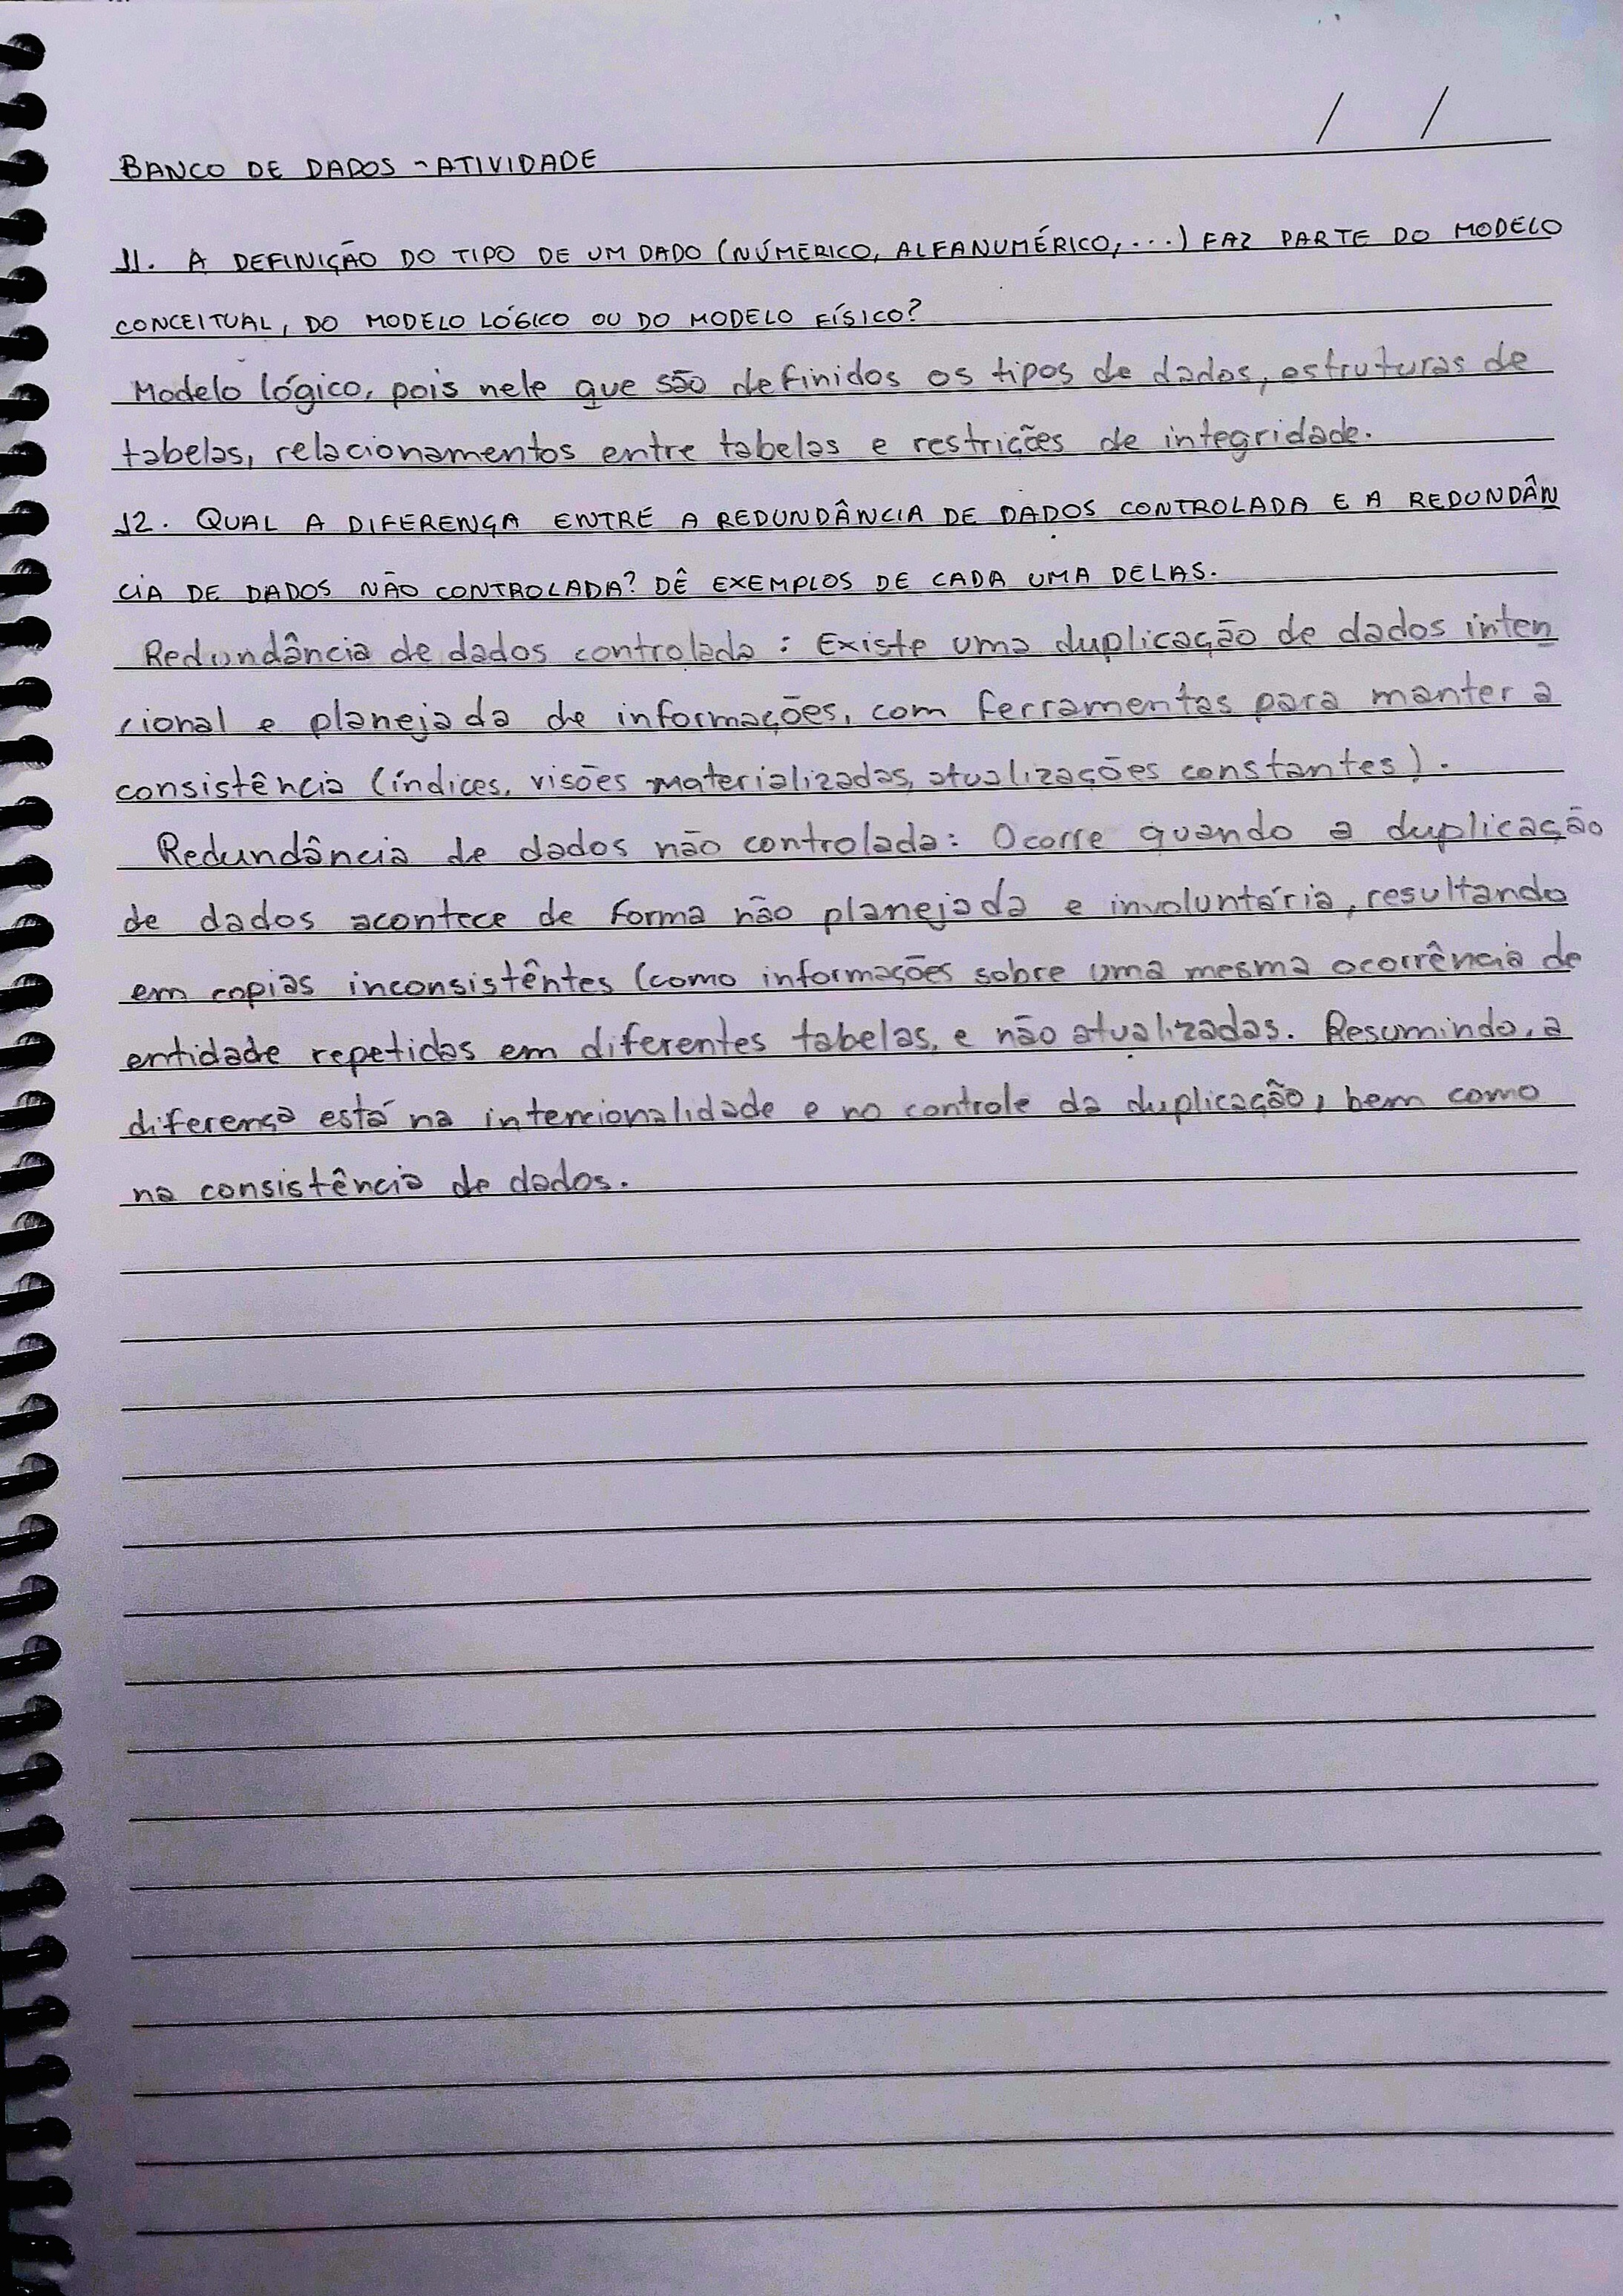 / /
BANCO DE DADOS - ATIVIDADE
11. A DEFINIÇÃO DO TIPO DE UM DADO (NÚMERICO, ALFANUMÉRICO, ...) FAZ PARTE DO MODELO
CONCEITUAL, DO MODELO LÓGICO OU DO MODELO FÍSICO?
Modelo lógico, pois nele que são definidos os tipos de dados, estruturas de
tabelas, relacionamentos entre tabelas e restrições de integridade.
12. QUAL A DIFERENÇA ENTRE A REDUNDÂNCIA DE DADOS CONTROLADA E A REDUNDÂN
CIA DE DADOS NÃO CONTROLADA? DÊ EXEMPLOS DE CADA UMA DELAS.
Redundância de dados controlada: Existe uma duplicação de dados inten
cional e planejada de informações, com ferramentas para manter a
consistência (índices, visões materializadas, atualizações constantes).
Redundância de dados não controlada: Ocorre quando a duplicação
de dados acontece de forma não planejada e involuntária, resultando
em copias inconsistêntes (como informações sobre uma mesma ocorrência de
entidade repetidas em diferentes tabelas, e não atualizadas. Resumindo, a
diferença está na intencionalidade e no controle da duplicação, bem como
na consistência de dados.